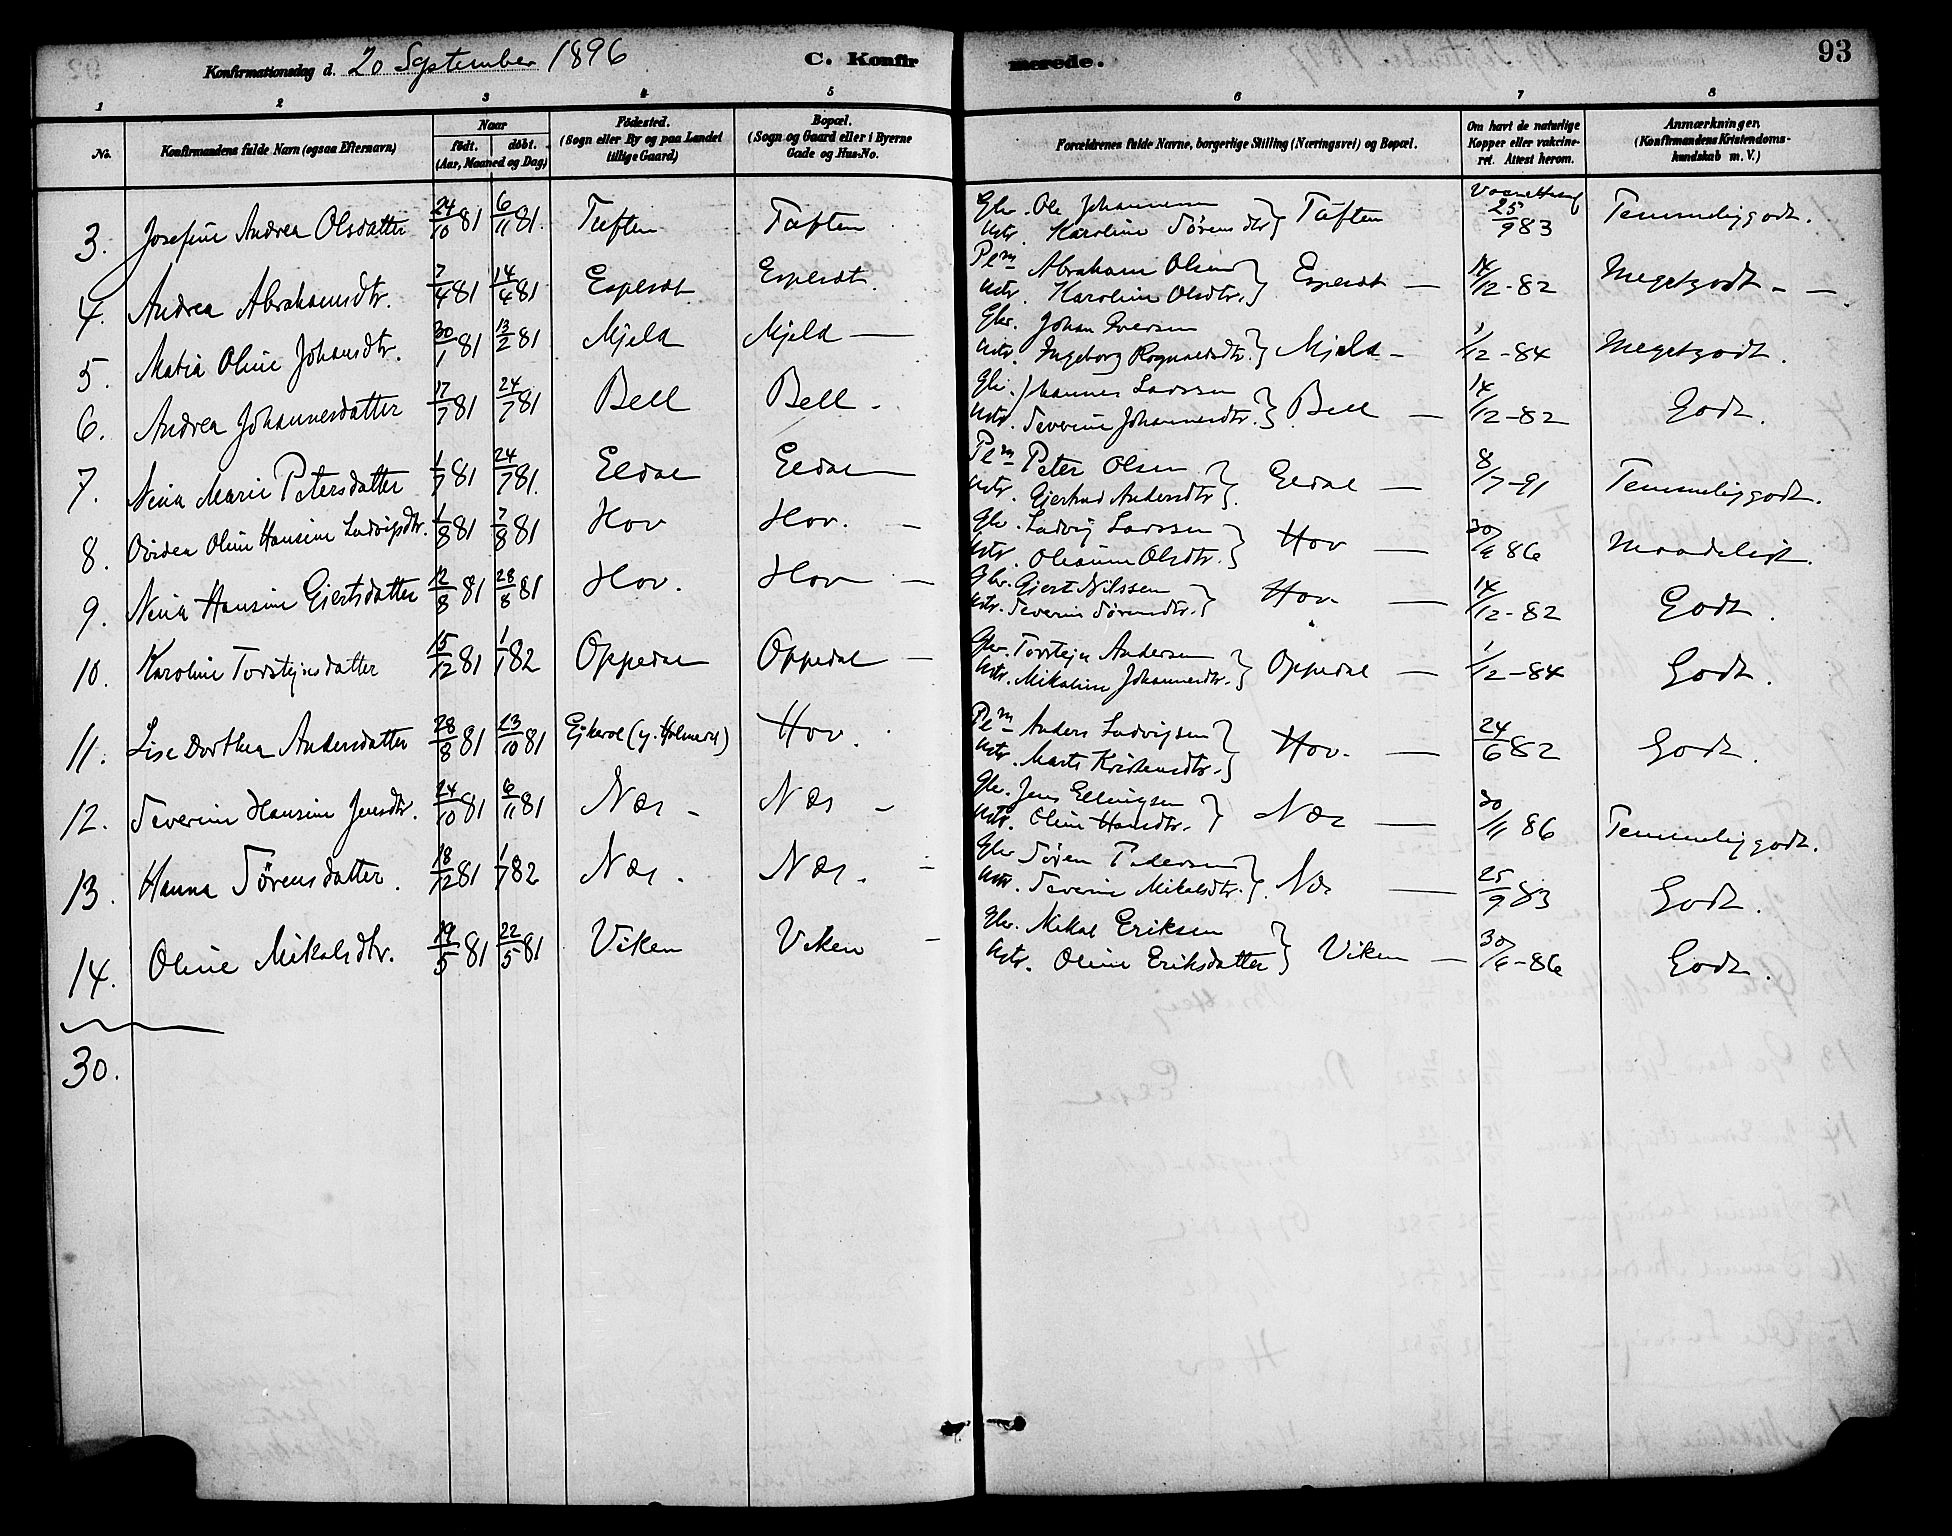 Konfirmationsdag d. 20 September 1896 C. Konfirmerede. 93
1 2 3 4 5 6 7 8
No. Konfirmandens fulde Navn (ogsaa Efternavn) Naar født. døbt. (Aar, Maaned og Dag) Fødested. (Sogn eller By og paa Landet tillige Gaard) Bopæl. (Sogn og Gaard eller i Byerne Gade og Hus-No. Forældrenes fulde Navne, borgerlige Stilling (Næringsvei) og Bopæl. Om havt de naturlige Kopper eller vakcineret. Attest herom. Anmærkninger, (Konfirmandens Kristendomskundskab m. V.)
3. Josefine Andrea Olsdatter 24/10 81 6/11 81. Tuften Tuften Gbr. Ole Johannesen Ustr. Karoline Sørensdtr } Tuften 25/9 83 Temmeliggodt.
4. Andrea Abrahamsdtr. 7/4 81 14/4 81 Espesdt Espesdt. Plm Abraham Olsen Ustr. Karoline Olsdtr. } Espesdt — 14/12-82 Megetgodt - -
5. Matia Oline Johansdtr. 30/1 81 13/2 81 Mjeld Mjeld — Gbr. Johan Iversen Ustr. Ingeborg Rognaldsdtr. } Mjeld - 1/12-84 Megetgodt.
6. Andrea Johannesdatter 17/7 81 24/7 81 Bell Bell - Gbr. Johannes Larssen Ustr. Severine Johannesdtr. } Bell — 14/12-82 Godt.
7. Nina Marie Petersdatter 1/7 81 24/7 81. Eldal Eldal — Plm Peter Olsen Ustr. Gjertrud Andersdtr } Eldal — 8/7-91 Temmeliggodt.
8. Oline Hansine Ludvigsdtr. 1/8 81 7/8 81 Hov Hov. — Gbr. Ludvig Larssen Ustr. Oleanne Olsdtr. } Hov — 86 Maadeligt.
9. Nina Hansine Gjertsdatter 12/8 81 28/8 81 Hov. Hov — Gbr. Gjert Nilssen Ustr. Severine Sørensdtr. } Hov — 14/12-82 Godt.
10. Karoline Torstejnsdatter 15/12 81 1/1 82 Oppedal Oppedal — Gbr. Torstejn Andersen Ustr. Mikaline Johannesdtr. } Oppedal — 1/12-84 Godt.
11. Lise Dorthea Andersdatter 28/8 81 23/10 81 Hov. Plm Anders Ludvigsen Ustr. Marte Kristensdtr. } Hov. — 24/6 82 Godt.
12. Severine Hansine Jensdtr. 24/10 81 6/11 81 Næs - Næs - Gbr. Jens Ellingsen Ustr. Oline Hansdtr. } Næs — 30/11 86 Temmeliggodt.
13. Hanna Sørensdatter. 18/12 81 82 Næs. Næs. - Gbr Søren Pedersen Ustr. Severine Mikalsdtr. } Næs — 25/9 83 Godt.
14. Oline Mikalsdtr. 19/5 81 22/5 81 Viken Viken - Gbr. Mikal Eriksen Ustr. Oline Eriksdatter } Viken — 86 Godt.
30.